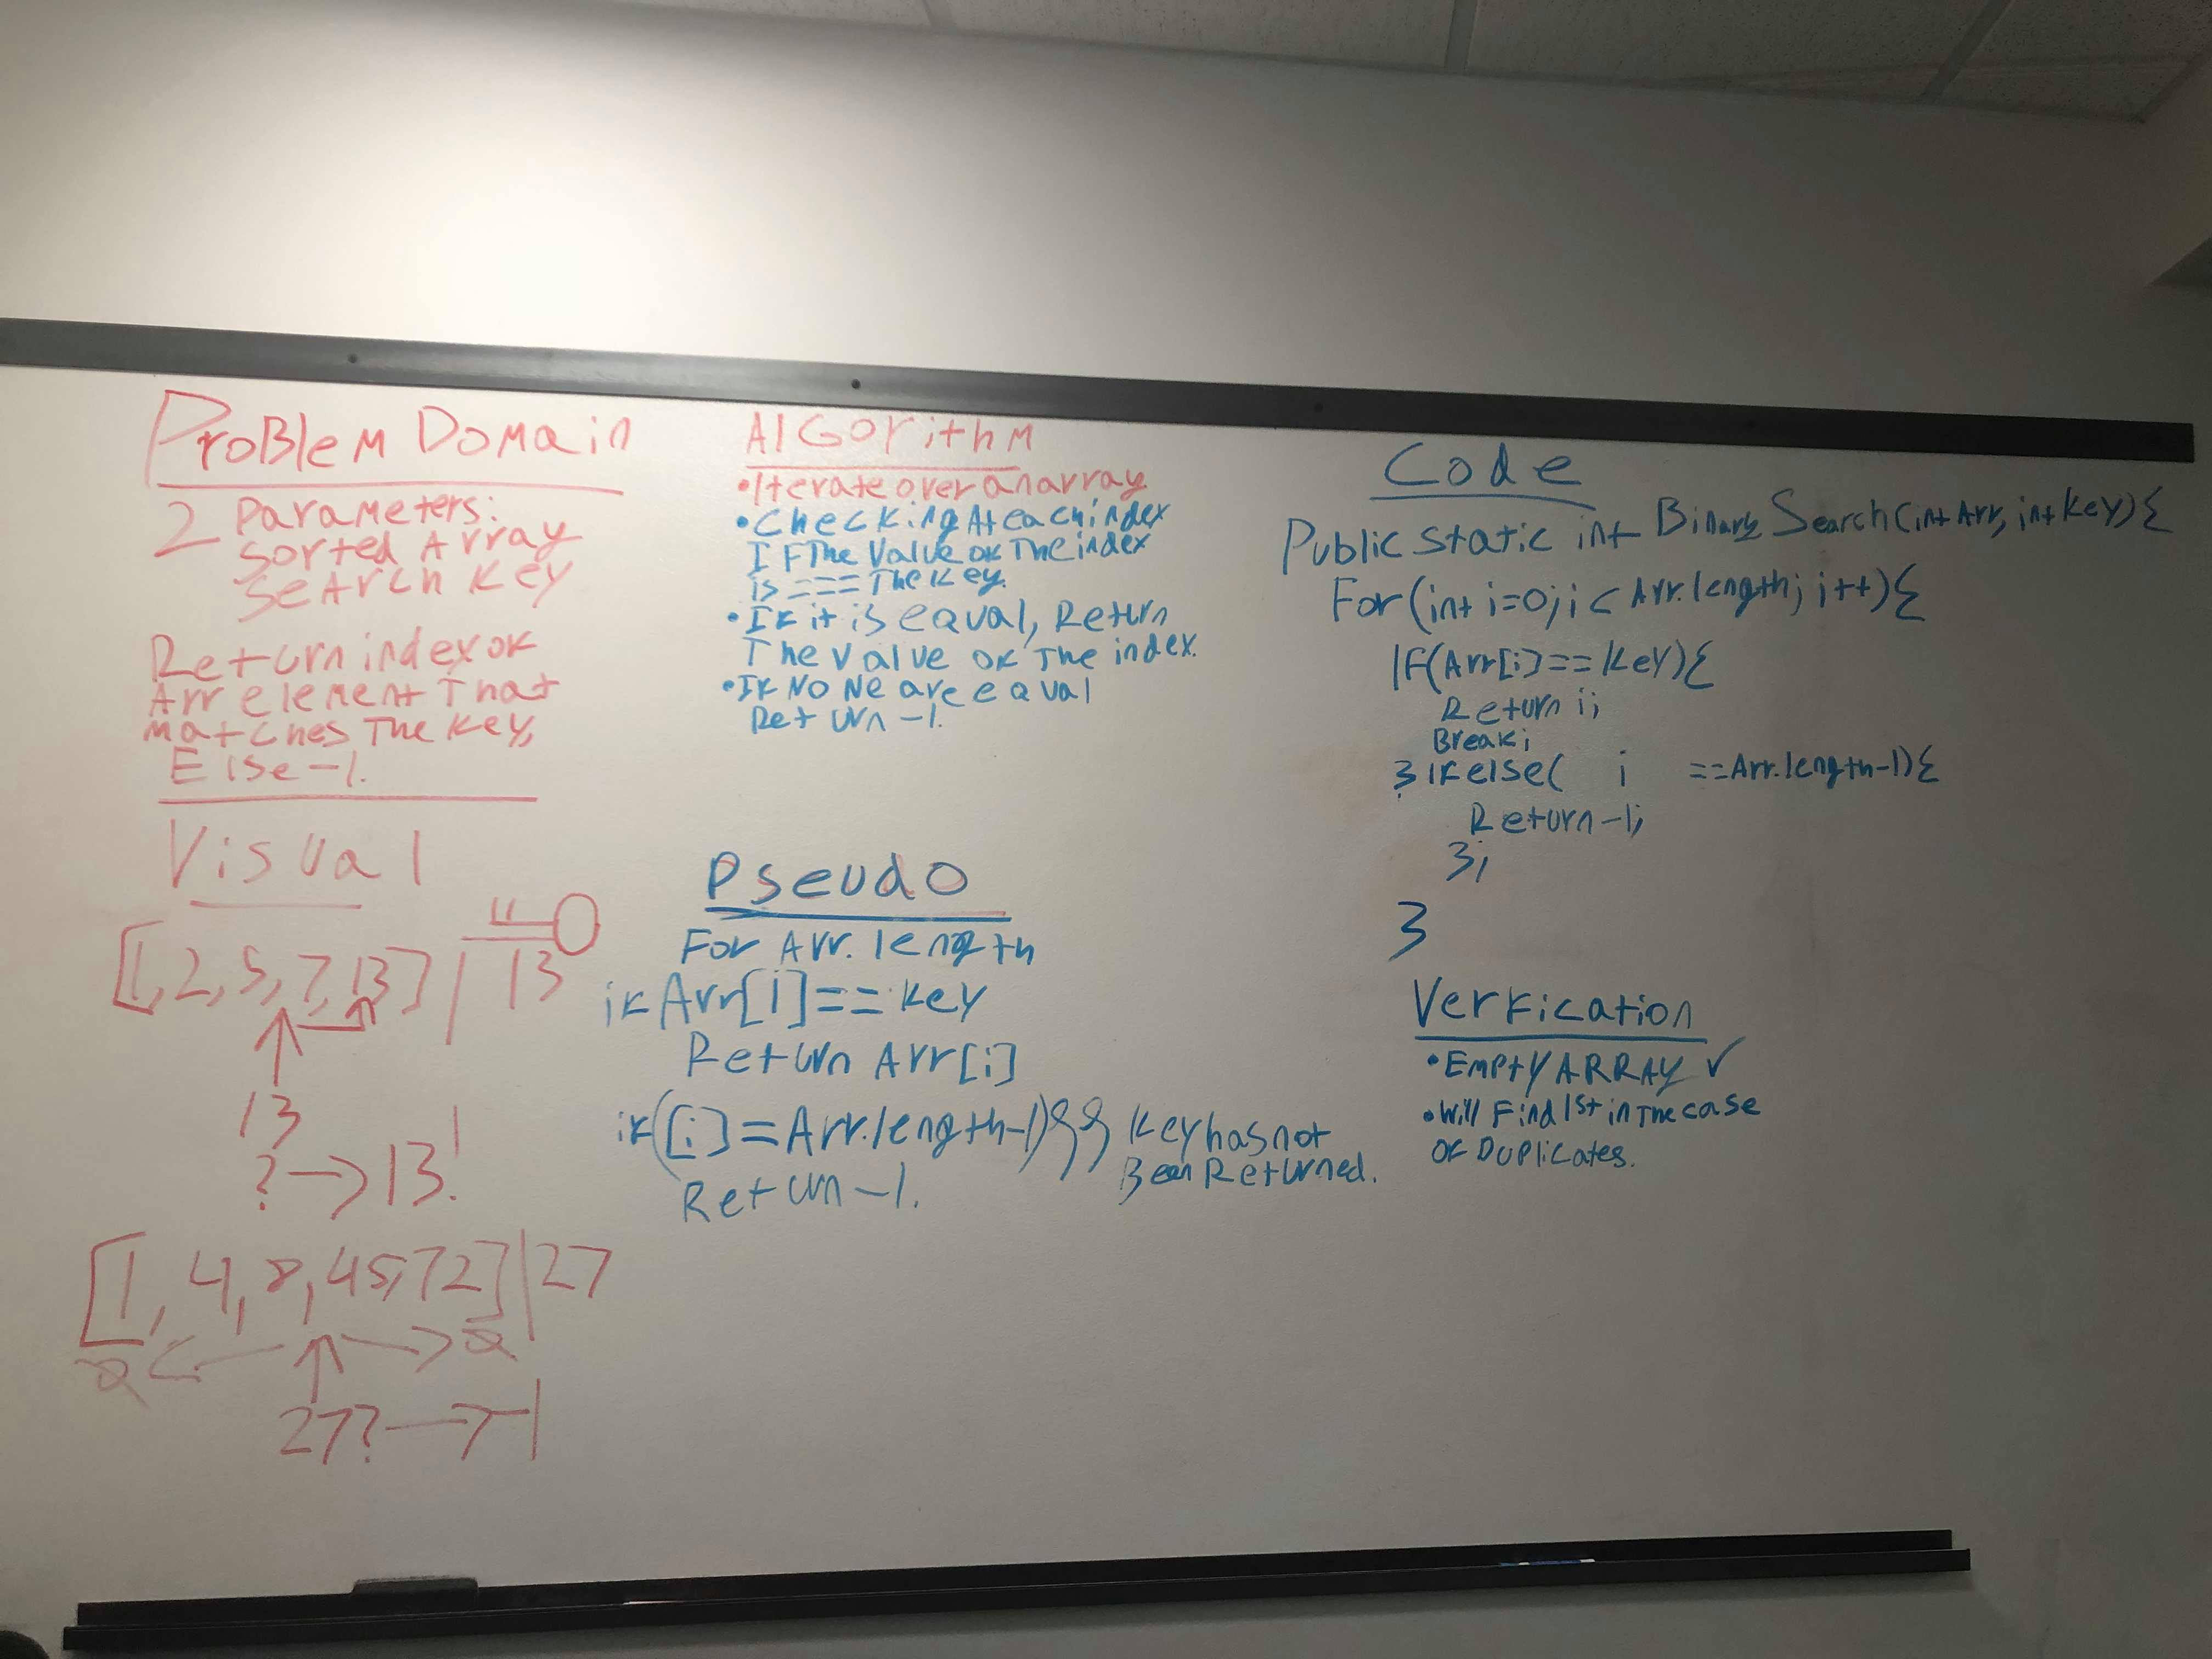 Problem Domain
2 Parameters:
Sorted Array
Search Key
Return index of
Arr element That
matches The Key,
Else -1.
Visual
[1,2,5,7,13] | 13
13
? → 13!
[1,4,8,45,72] | 27
27? → -1
Algorithm
•Iterate over an array
•Checking At each index
IF The Value of The index
is === The Key.
•If it is equal, Return
The value of The index.
•If None are equal
Return -1.
Pseudo
For Arr.length
if Arr[i]==key
Return Arr[i]
if([i]=Arr.length-1)&& Key has not
Been Returned.
Return -1.
Code
Public static int Binary Search(int Arr, int Key){
For(int i=0; i < Arr.length; i++){
IF(Arr[i]==Key){
Return i;
Break;
} if else( i ==Arr.length-1){
Return -1;
};
}
Verfication
•Empty ARRAY ✓
•Will Find 1st in The case
of Duplicates.